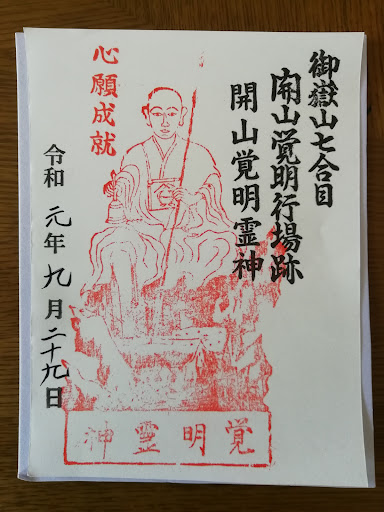 御嶽山七合目
開山覚明行場跡
開山覚明霊神
心願成就
令和元年九月二十九日
覚明霊神